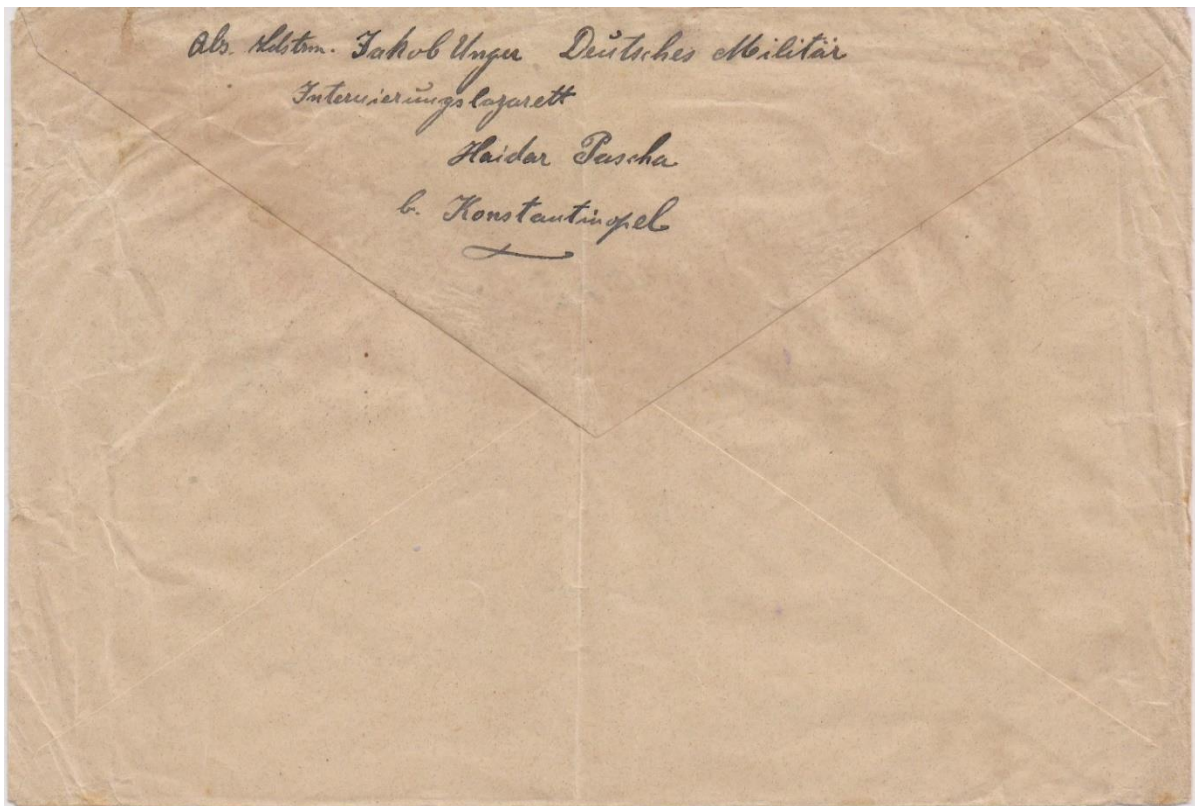 Abs. Ldstrm. Jakob Unger Deutsches Militär
Internierungslazarett
Haidar Pascha
b. Konstantinopel